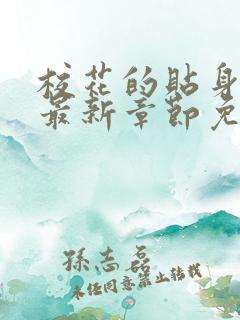 校花的贴身
最新章节免
孙志磊
未经同意禁止转载